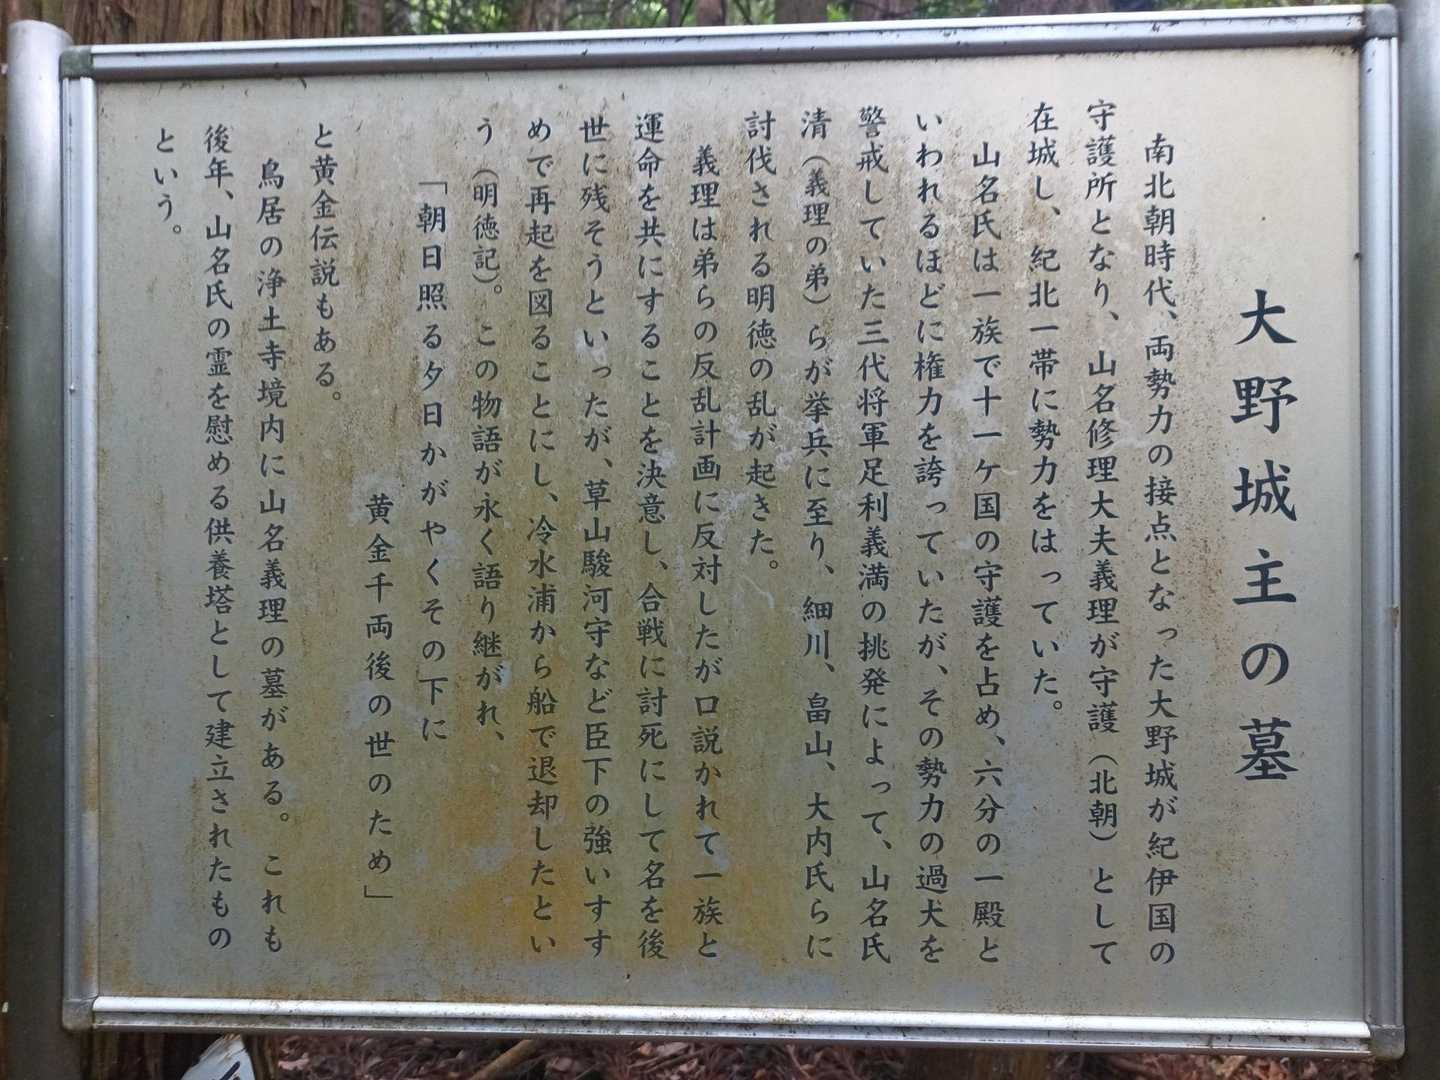 大野城主の墓
南北朝時代、両勢力の接点となった大野城が紀伊国の
守護所となり、山名修理大夫義理が守護（北朝）として
在城し、紀北一帯に勢力をはっていた。
山名氏は一族で十一ケ国の守護を占め、六分の一殿と
いわれるほどに権力を誇っていたが、その勢力の過犬を
警戒していた三代将軍足利義満の挑発によって、山名氏
清（義理の弟）らが挙兵に至り、細川、畠山、大内氏らに
討伐される明徳の乱が起きた。
義理は弟らの反乱計画に反対したが口説かれて一族と
運命を共にすることを決意し、合戦に討死にして名を後
世に残そうといったが、草山駿河守など臣下の強いすす
めで再起を図ることにし、冷水浦から船で退却したとい
う（明徳記）。この物語が永く語り継がれ、
「朝日照る夕日かがやくその下に
黄金千両後の世のため」
と黄金伝説もある。
鳥居の浄土寺境内に山名義理の墓がある。これも
後年、山名氏の霊を慰める供養塔として建立されたもの
という。